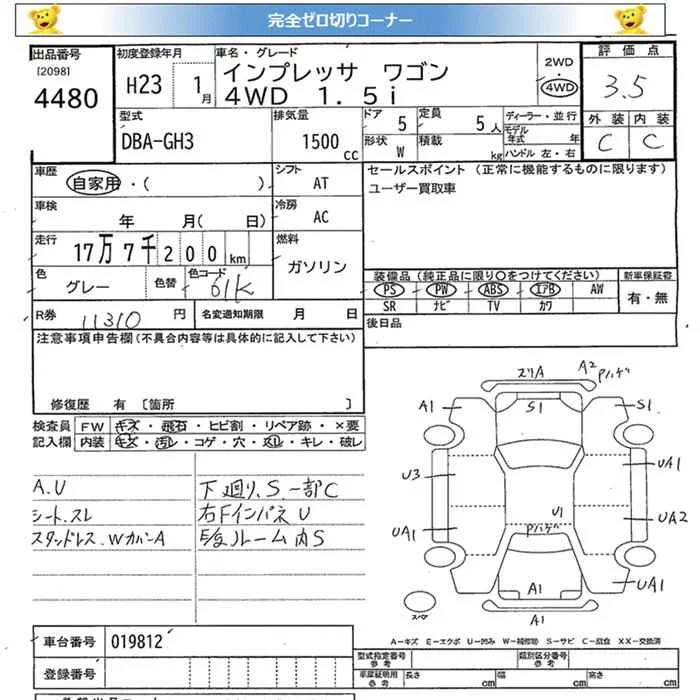 完全ゼロ切りコーナー
出品番号
[2098]
4480
初度登録年月
H23 1月
車名・グレード
インプレッサ ワゴン
4WD 1.5i
2WD
・
4WD
評価点
3.5
外装 内装
C C
型式
DBA-GH3
排気量
1500cc
ドア 5
形状 W
定員 5人
積載 kg
ディーラー・並行
モデル年式 年
ハンドル 左・右
車歴
自家用・( )
シフト
AT
セールスポイント (正常に機能するものに限ります)
ユーザー買取車
車検
年 月( 日)
冷房
AC
走行
17万7千200km
燃料
ガソリン
色
グレー
色替
色コード
61K
装備品 (純正品に限り○をつけてください)
新車保証書
PS PW ABS エアB AW
SR ナビ TV カワ
有・無
R券 11310 円
名変通知期限 月 日
後日品
注意事項申告欄(不具合内容等は具体的に記入して下さい)
修復歴 有 [箇所 ]
検査員記入欄
FW キズ・飛石・ヒビ割・リペア跡・×要
内装 キズ・汚レ・コゲ・穴・スレ・キレ・破レ
A.U
シート.スレ
スタッドレス.WカバーA
下廻り.S.一部C
右FインパネU
ルーム内S
ズリA
A2 Pハゲ
A1
S1
S1
U3
UA1
U1
UA1
UA2
Pハゲ
A1
UA1
A1
スペア
A-キズ E-エクボ U-凹み W-補修跡 S-サビ C-腐食 XX-交換済
車台番号 019812
登録番号
型式指定番号 参考
類別区分番号 参考
車庫証明用 参考
長さ cm
幅 cm
高さ cm